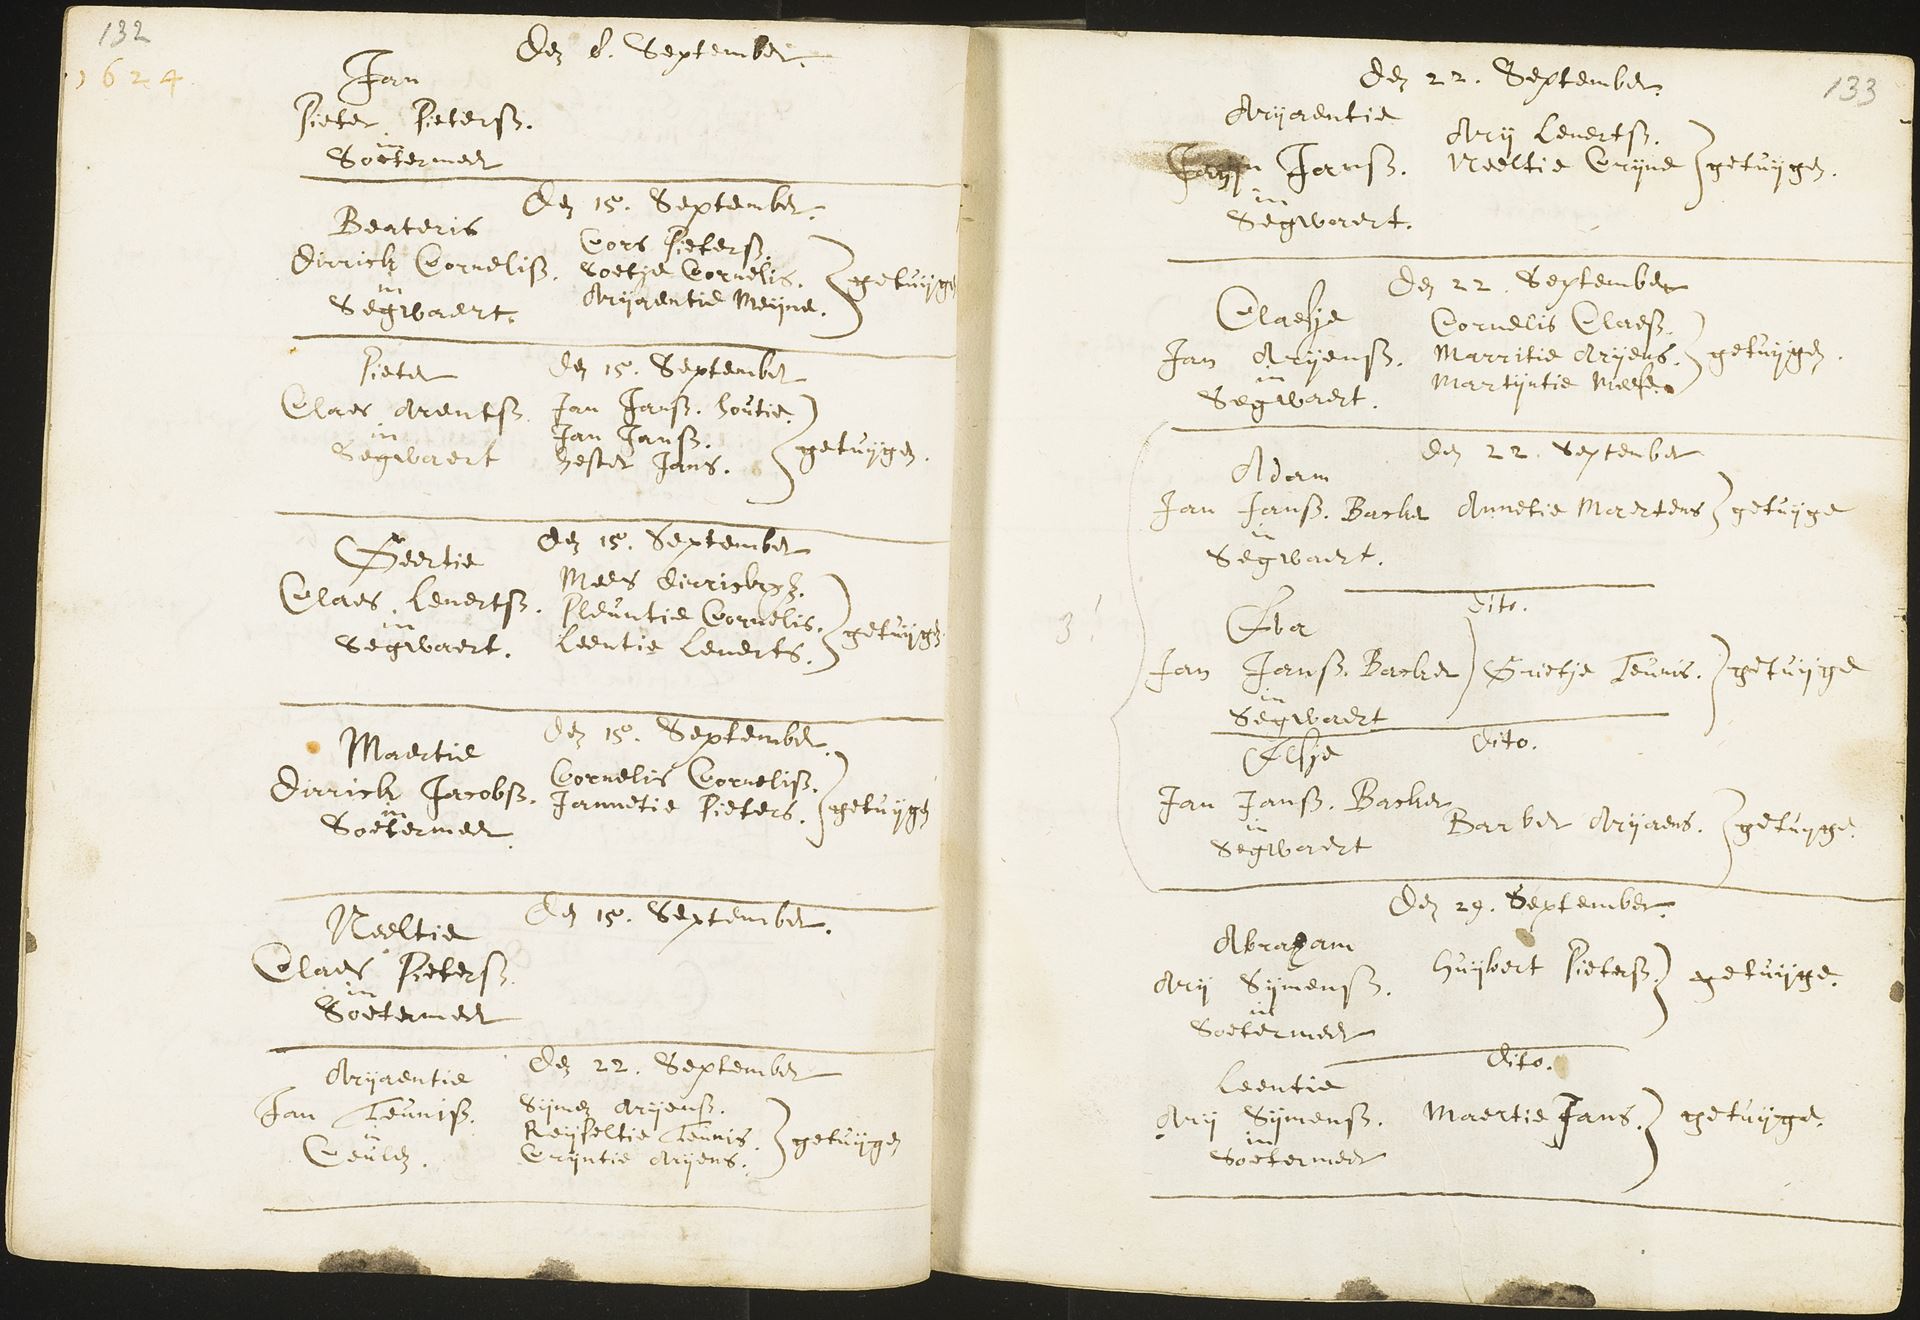 132
1624
Den 8. September.
Jan
Pieter Pieterss.
in
Soetermeer
Den 15. September.
Beateris
Dirrick Corneliss.
in
Segwaert.
Cors Pieterss.
Soetje Cornelis.
Arijaentie Meijne.
getuijgen
Den 15. September
Pieter
Claes Arentss.
in
Segwaert
Jan Janss. houtie.
Jan Janss.
hester Jans.
getuijgen.
Den 15. September
Geertie
Claes Lenertss.
in
Segwaert.
Mees Dirricksz.
Pleuntie Cornelis.
Leentie Lenerts.
getuijgen
Den 15. September.
Maertie
Dirrick Jacobss.
in
Soetermeer.
Cornelis Corneliss.
Jannetie Pieters.
getuijgen
Den 15. September.
Neeltie
Claes Pieterss.
in
Soetermeer
Den 22. September
Arijaentie
Jan Teuniss.
in
Sijmen Arijenss.
Teunis.
Crijntie Arijens.
getuijgen
133
Den 22. September.
Arijaentie
Janss.
in
Segwaert.
Arij Lenertss.
Neeltie Crijne
getuijgen.
Den 22. September
Claesje
Jan Arijenss.
in
Segwaert.
Cornelis Claess.
Marritie Arijens.
Martijntie Meese.
getuijgen.
3!
Den 22. September
Adam
Jan Janss. Backer
in
Segwaert.
Annetie Maertens
getuijge
Dito.
Eva
Jan Janss. Backer
in
Segwaert
Grietje Teunis.
getuijge
Dito.
Elsje
Jan Janss. Backer
in
Segwaert
Barber Arijaens.
getuijge.
Den 29. September.
Abraham
Arij Sijmenss.
in
Soetermeer
Huijbert Pieterss.
getuijge.
Dito.
Leentie
Arij Sijmenss.
in
Soetermeer
Maertie Jans.
getuijge.